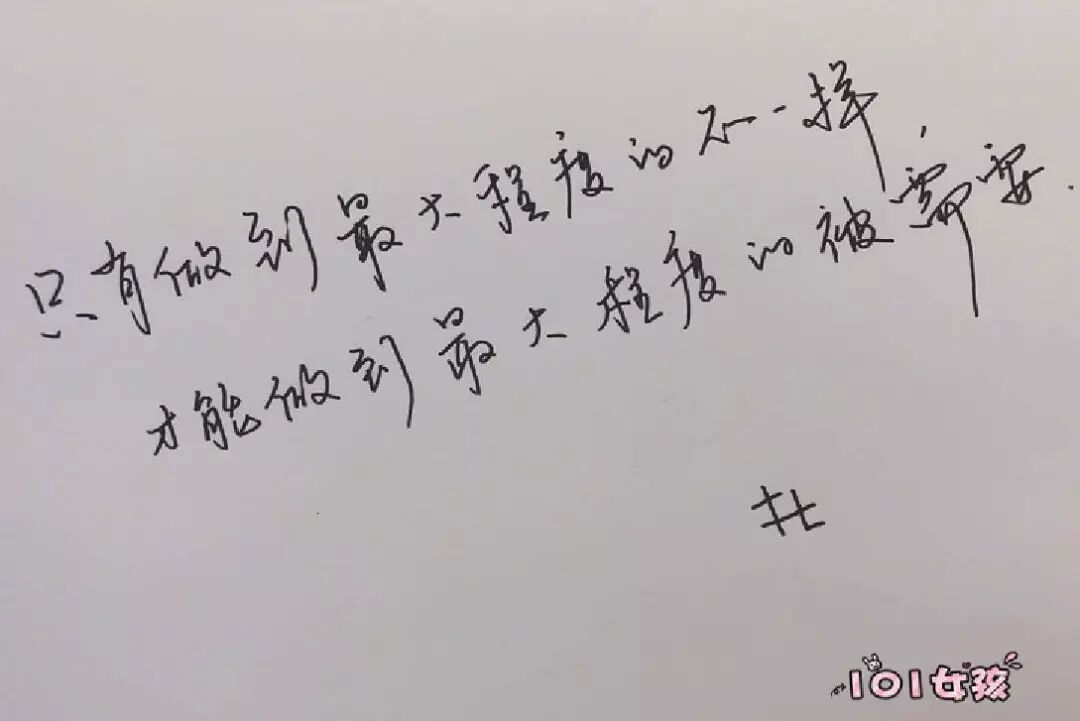 只有做到最大程度的不一样
才能做到最大程度的被需要.
101女孩